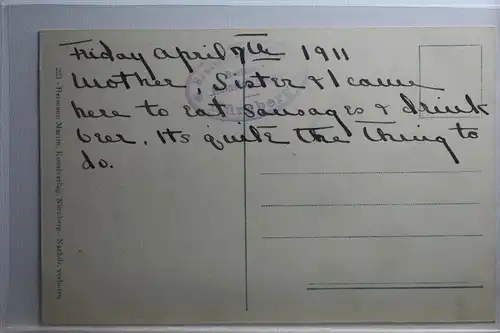 Friday April 7th 1911
Mother, Sister & I came
here to eat sausages & drink
beer. Its quite the thing to
do.
223 - Hermann Martin, Kunstverlag, Nürnberg. Nachdr. verboten